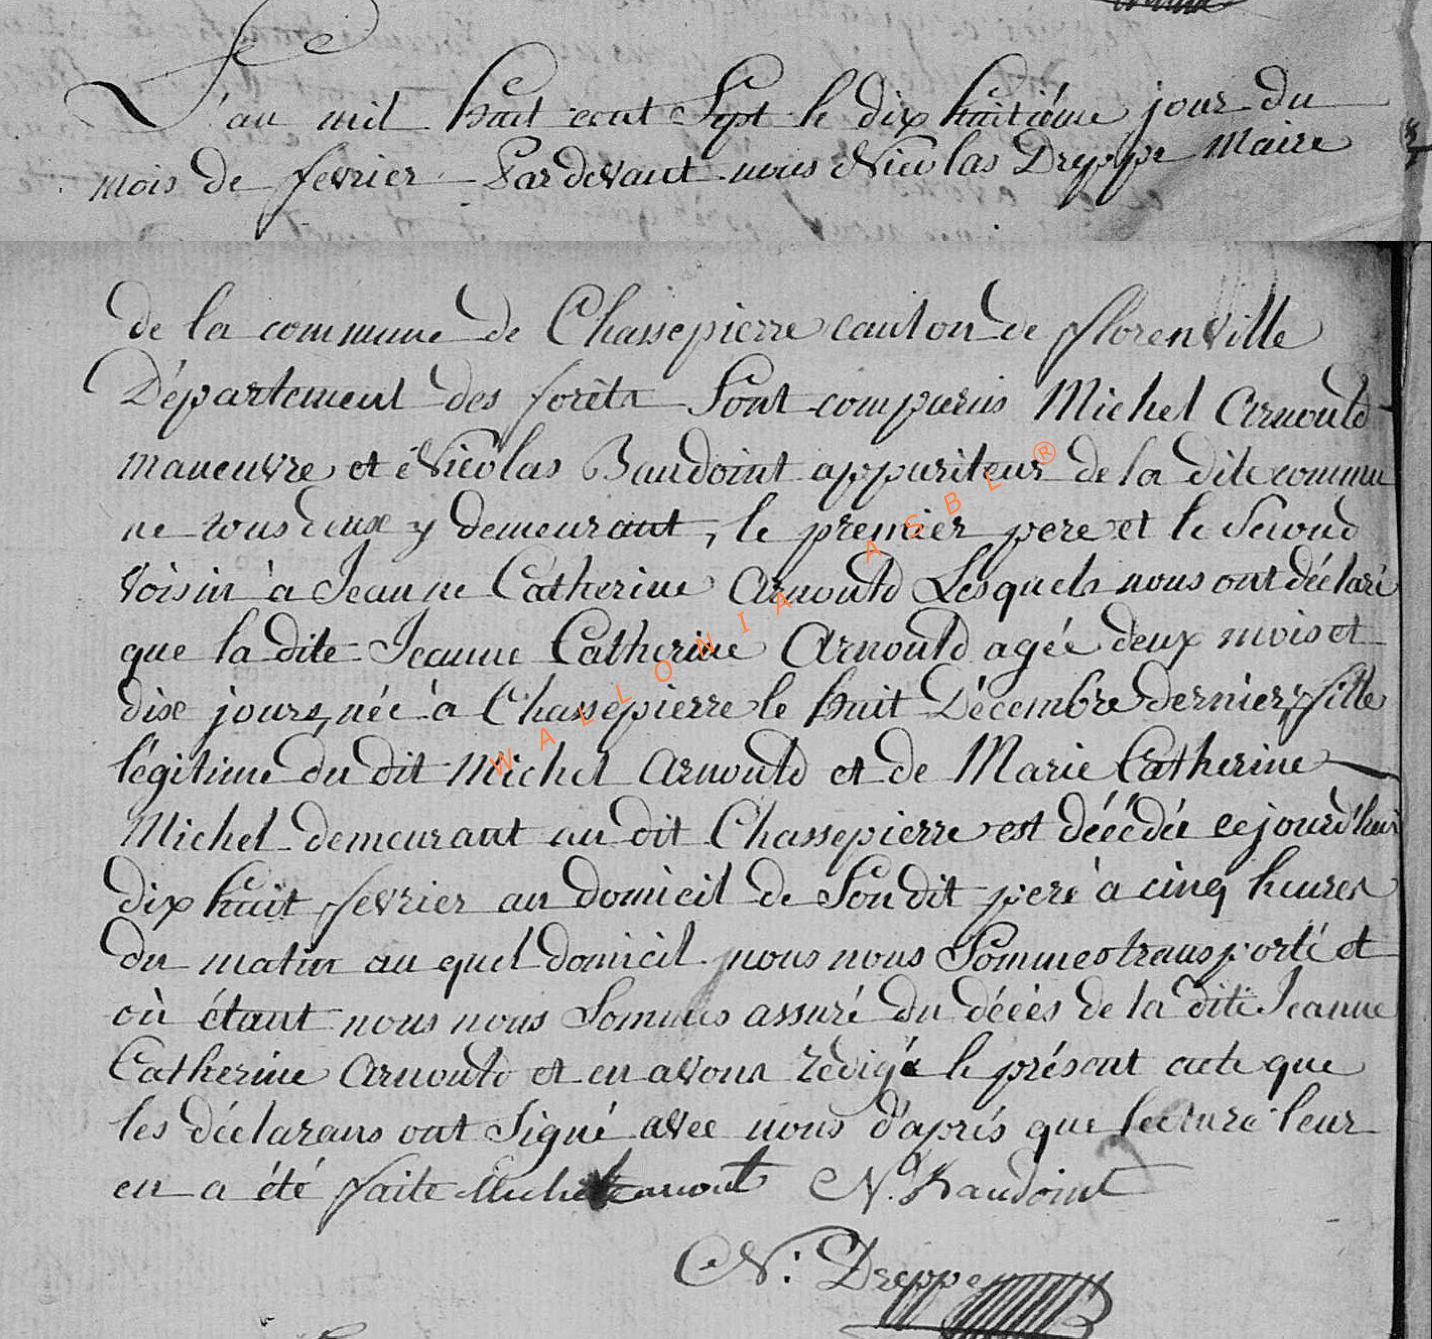 L'an mil huit cent Sept le dix huitiéme jour du
mois de fevrier Pardevant nous Nicolas Dreppe Maire
de la commune de Chassepierre canton de florenville
Département des forêts Sont comparus Michel Arnould
maneuvre et Nicolas Baudoint appariteur de la dite commu
ne tous deux y demeurant, le premier pere et le Second
Voisin à Jeanne Catherine Arnould Lesquels nous ont déclaré
que la dite Jeanne Catherine Arnould agée deux mois et
dix jours, née à Chassepierre le huit Décembre dernier, fille
légitime du dit Michel Arnould et de Marie Catherine
Michel demeurant au dit Chassepierre est décédée cejourd'hui
dix huit fevrier au domicil de Son dit pere à cinq heures
du matin au quel domicil nous nous Sommes transporté et
où étant nous nous Sommes assuré du décès de la dite Jeanne
Catherine Arnould et en avons rédigé le présent acte que
les déclarans ont Signé avec nous d'aprés que lecture leur
en a été faite Michel arnoult N. Baudoint
N. Dreppe
WALLONIA ASBL ®